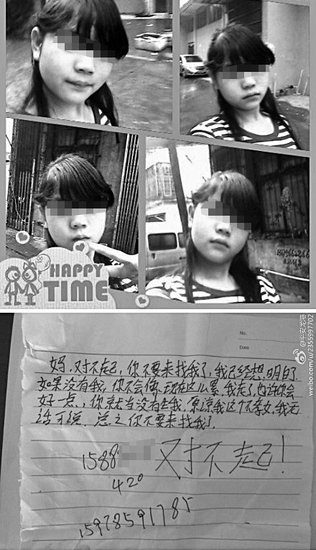 HAPPY
TIME
No.
Date
妈,对不起,你不要来找我了,我已经想明白
如果没有我,你不会像现在这么累,我走了,也许你会
好一点、你就当没有生我,原谅我这个不孝女,我无
话可说,总之你不要来找我!
1588
对不起!
420
15978591785
weibo.com/u/2355997702